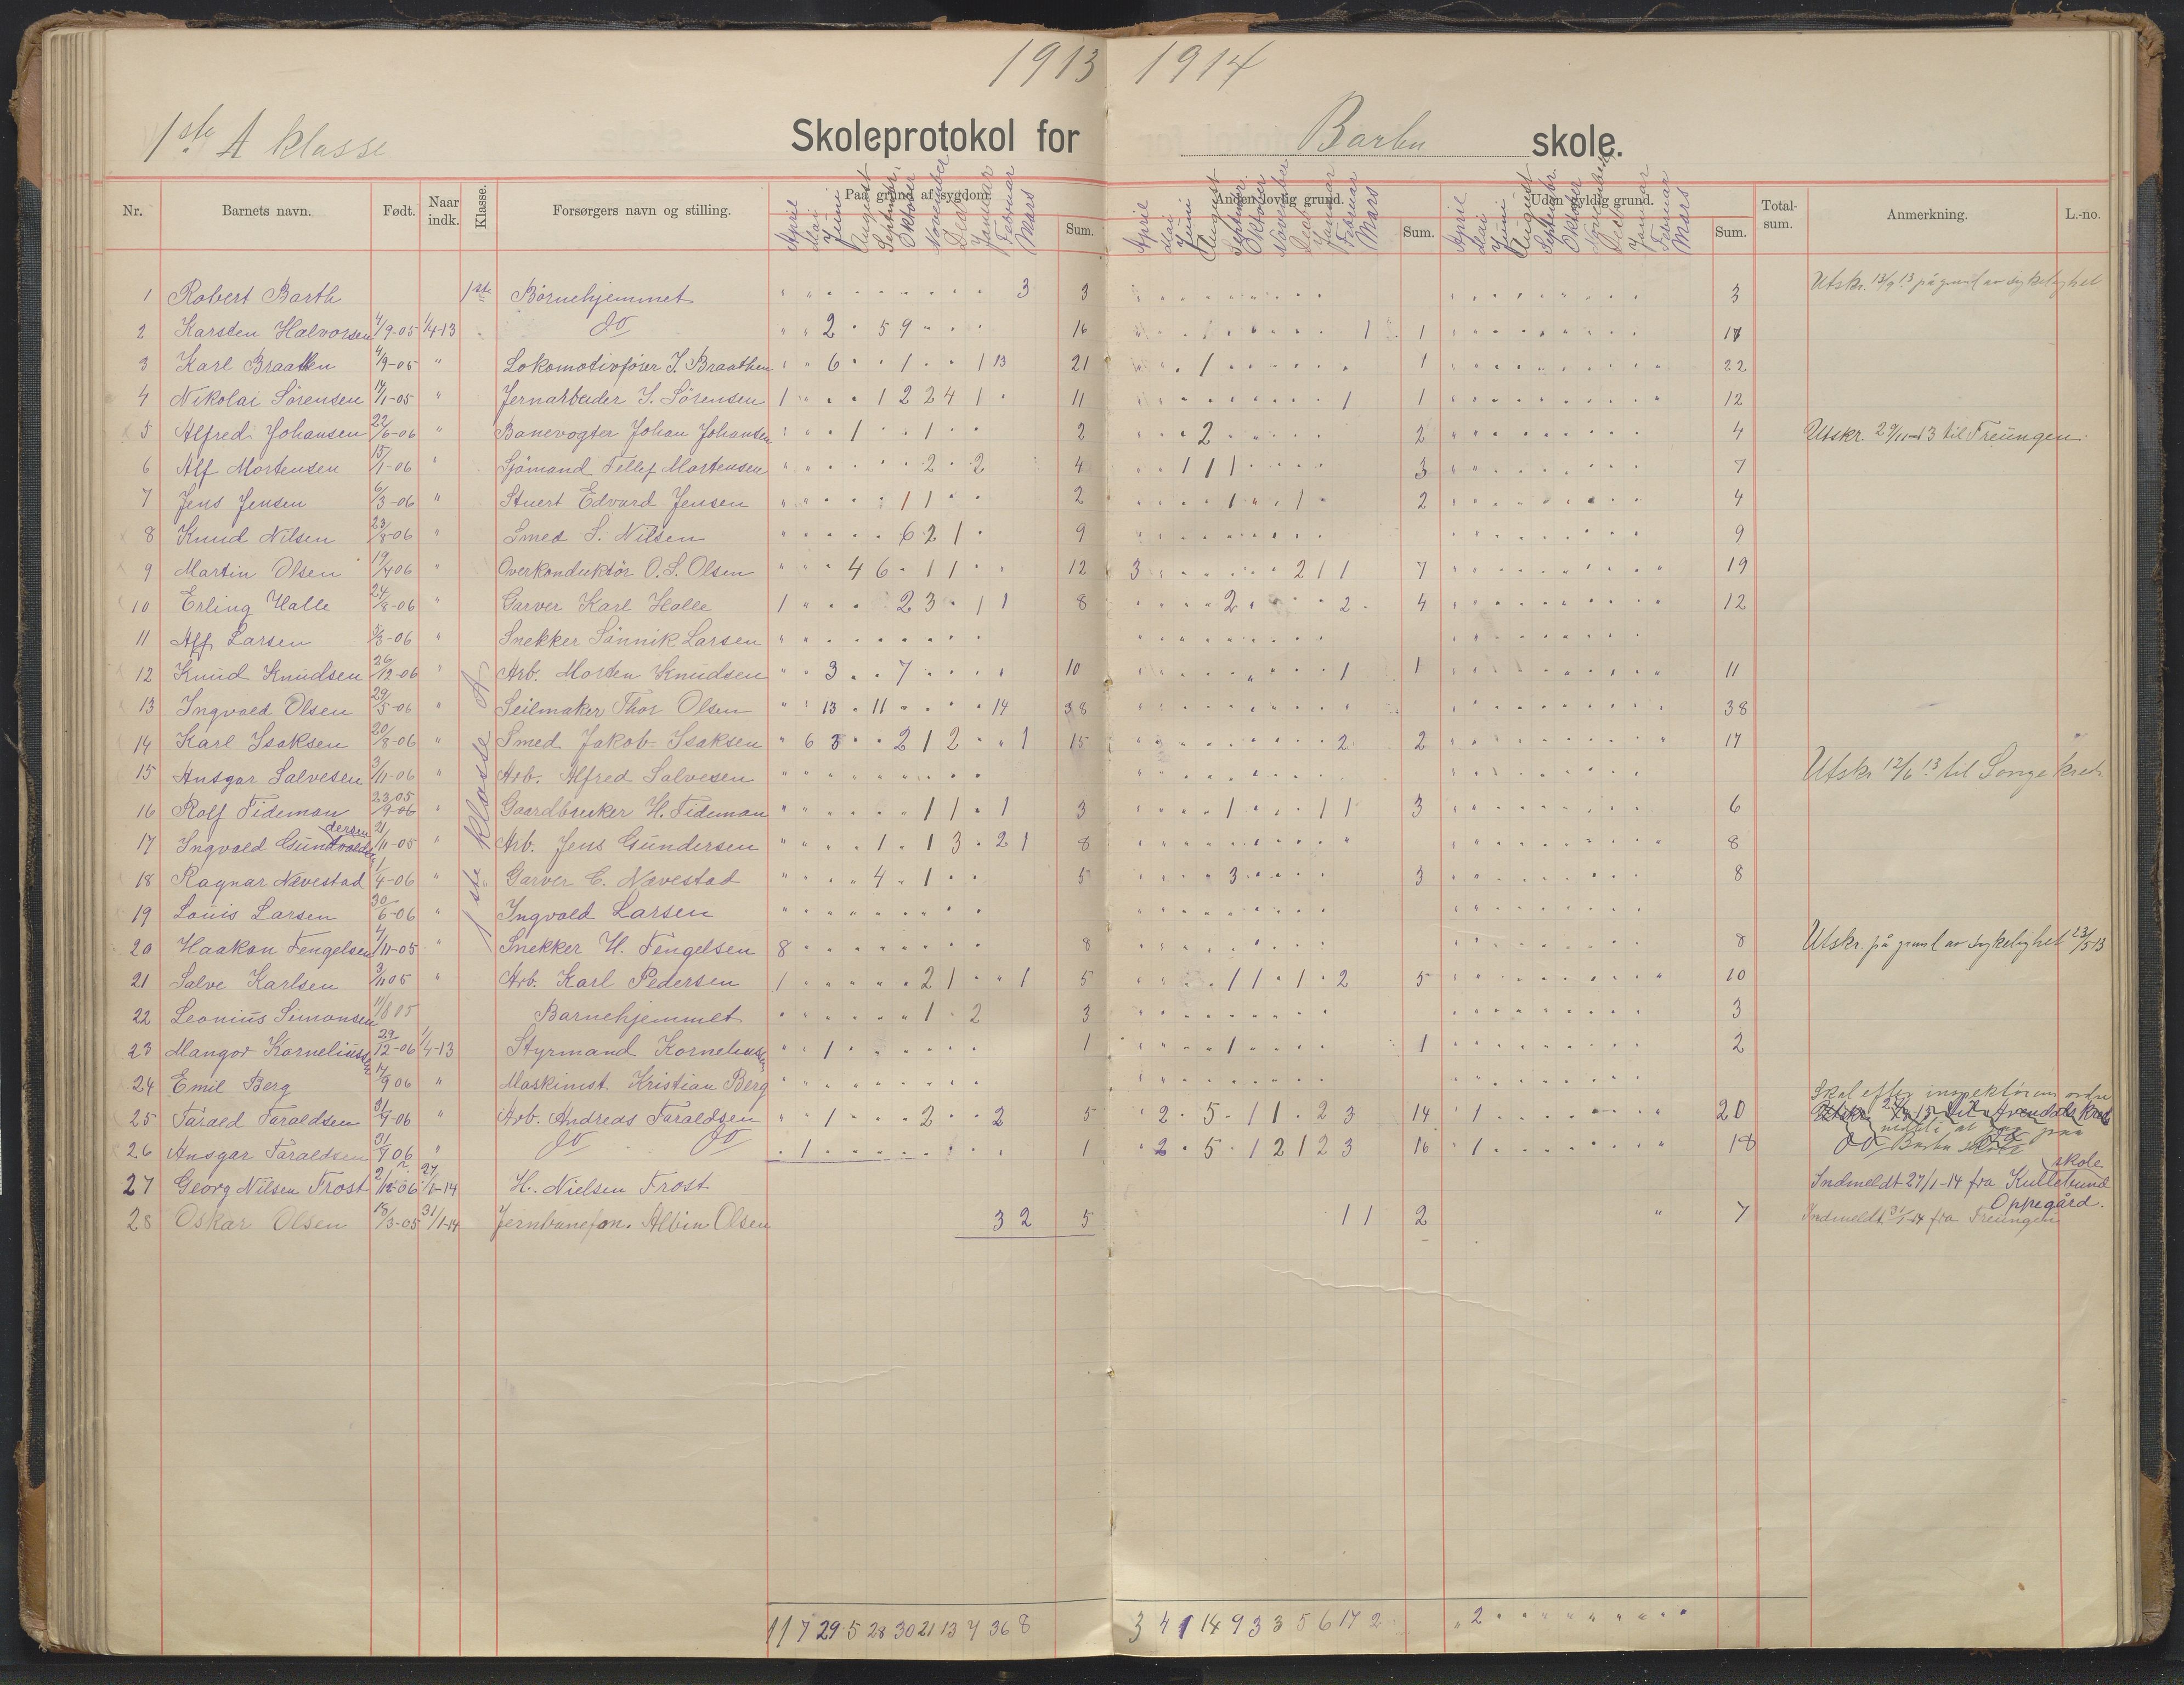 1913 1914
1ste A klasse Skoleprotokol for Barbu skole.
Nr. Barnets navn. Født. Naar indk. Klasse. Forsørgers navn og stilling. Paa grund af sygdom. Sum. Anden lovlig grund. Sum. Uden gyldig grund. Sum. Total-sum. Anmerkning. L.-no.
April Mai Juni August September Oktober November Desbr. Januar Februar Mars
April Mai Juni August Septembr. Oktober November Desbr. Januar Februar Mars
April Mai Juni August Septembr. Oktober November Desbr. Januar Februar Mars
1 Robert Barth 1ste Børnehjemmet 3 3 3 Utskr. 13/9 13 på grund av sykelighet
2 Karsten Halvorsen 4/9-05 1/4-13 do 2 5 9 16 1 1 17
3 Karl Braathen 4/9-05 " Lokomotivfører J. Braathen 6 1 1 13 21 1 1 22
4 Nikolai Sørensen 14/1-05 " Jernarbeider S. Sørensen 1 1 2 2 4 1 11 1 1 12
5 Alfred Johansen 22/6-06 " Banevogter Johan Johansen 1 1 2 2 2 4 Utskr. 29/11-13 til Treungen.
6 Alf Mortensen 15/1-06 " Sjömand Tellef Mortensen 2 2 4 1 1 1 3 7
7 Jens Jensen 6/3-06 " Stuert Edvard Jensen 1 1 2 1 1 2 4
8 Knud Nilsen 23/8-06 " Smed S. Nilsen 6 2 1 9 9
9 Martin Olsen 19/4 06 " Overkonduktør O. S. Olsen 4 6 1 1 12 3 2 1 1 7 19
10 Erling Halle 24/8-06 " Garver Karl Halle 1 2 3 1 1 8 2 2 4 12
11 Alf Larsen 5/8-06 " Snekker Sønnik Larsen
12 Knud Knudsen 26/12-06 " Arb. Morten Knudsen 3 7 10 1 1 11
13 Ingvald Olsen 29/5-06 " Seilmaker Thor Olsen 13 11 14 38 38
14 Karl Isaksen 20/8-06 " Smed Jakob Isaksen 6 3 2 1 2 1 15 2 2 17
15 Ansgar Salvesen 3/11-06 " Arb. Alfred Salvesen Utskr 12/6 13 til Songe kreds
16 Rolf Fideman 23 05/9-06 " Gaardbruker H. Fideman 1 1 1 3 1 1 1 3 6
17 Ingvald Gundersen 21/11-05 " Arb. Jens Gundersen 1 1 3 2 1 8 8
18 Ragnar Nævestad 1/4-06 " Garver C. Nævestad 4 1 5 3 3 8
19 Louis Larsen 30/6-06 " Ingvald Larsen
1 ste klasse A
20 Haakon Tengelsen 4/11-05 " Snekker H. Tengelsen 8 8 8 Utskr. på grund av sykelighet 23/5 13
21 Salve Karlsen 3/11 05 " Arb. Karl Pedersen 1 2 1 1 5 1 1 1 2 5 10
22 Leonius Simonsen 11/8 05 Barnehjemmet 1 2 3 3
23 Mangor Korneliussen 29/12-06 1/4-13 Styrmand Korneliussen 1 1 1 1 2
24 Emil Berg 17/9 06 " Maskinist Kristian Berg
25 Tarald Taraldsen 31/7-06 " Arb. Andreas Taraldsen 1 2 2 5 2 5 1 1 2 3 14 1 20 Skal efter inspektørens ordre
26 Ansgar Taraldsen 31/7 06 " do do 1 1 2 5 1 2 1 2 3 16 1 18 do Barbu skole
27 Georg Nilsen Frost 2/12-06 27/1-14 H. Nielsen Frost Indmeldt 27/1-14 fra Kullebund skole Oppegård.
28 Oskar Olsen 13/3-05 31/1-14 Jernbanefon. Albin Olsen 3 2 5 1 1 2 " 7 Indmeldt 31/1-14 fra Treungen
11 7 29 5 28 30 21 13 7 36 8 3 4 1 14 9 3 3 5 6 17 2 2